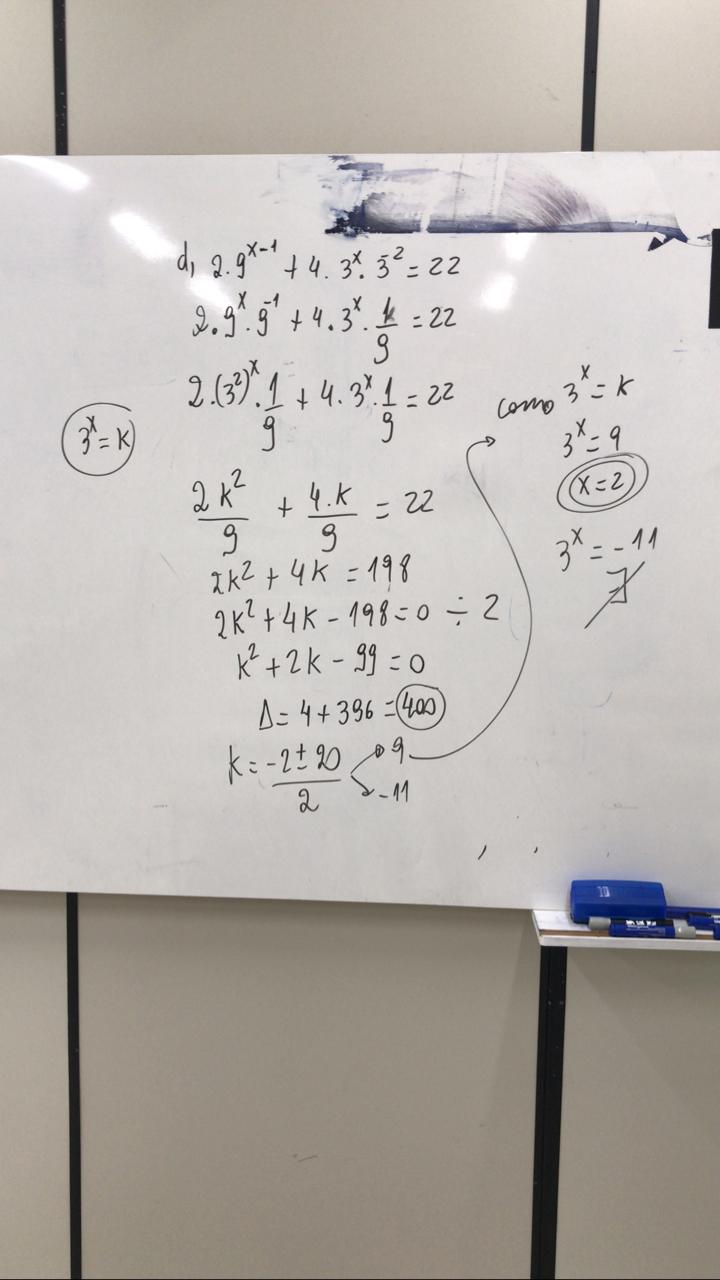 d, 2.9^{x-1} + 4.3^x.3^{-2} = 22
2.9^x.9^{-1} + 4.3^x.1/9 = 22
2.(3^2)^x.1/9 + 4.3^x.1/9 = 22
3^x = k
2k^2/9 + 4.k/9 = 22
2k^2 + 4k = 198
2k^2 + 4k - 198 = 0 ÷ 2
k^2 + 2k - 99 = 0
Δ = 4 + 396 = 400
k = -2 ± 20/2
9
-11
como 3^x = k
3^x = 9
x = 2
3^x = -11
∄